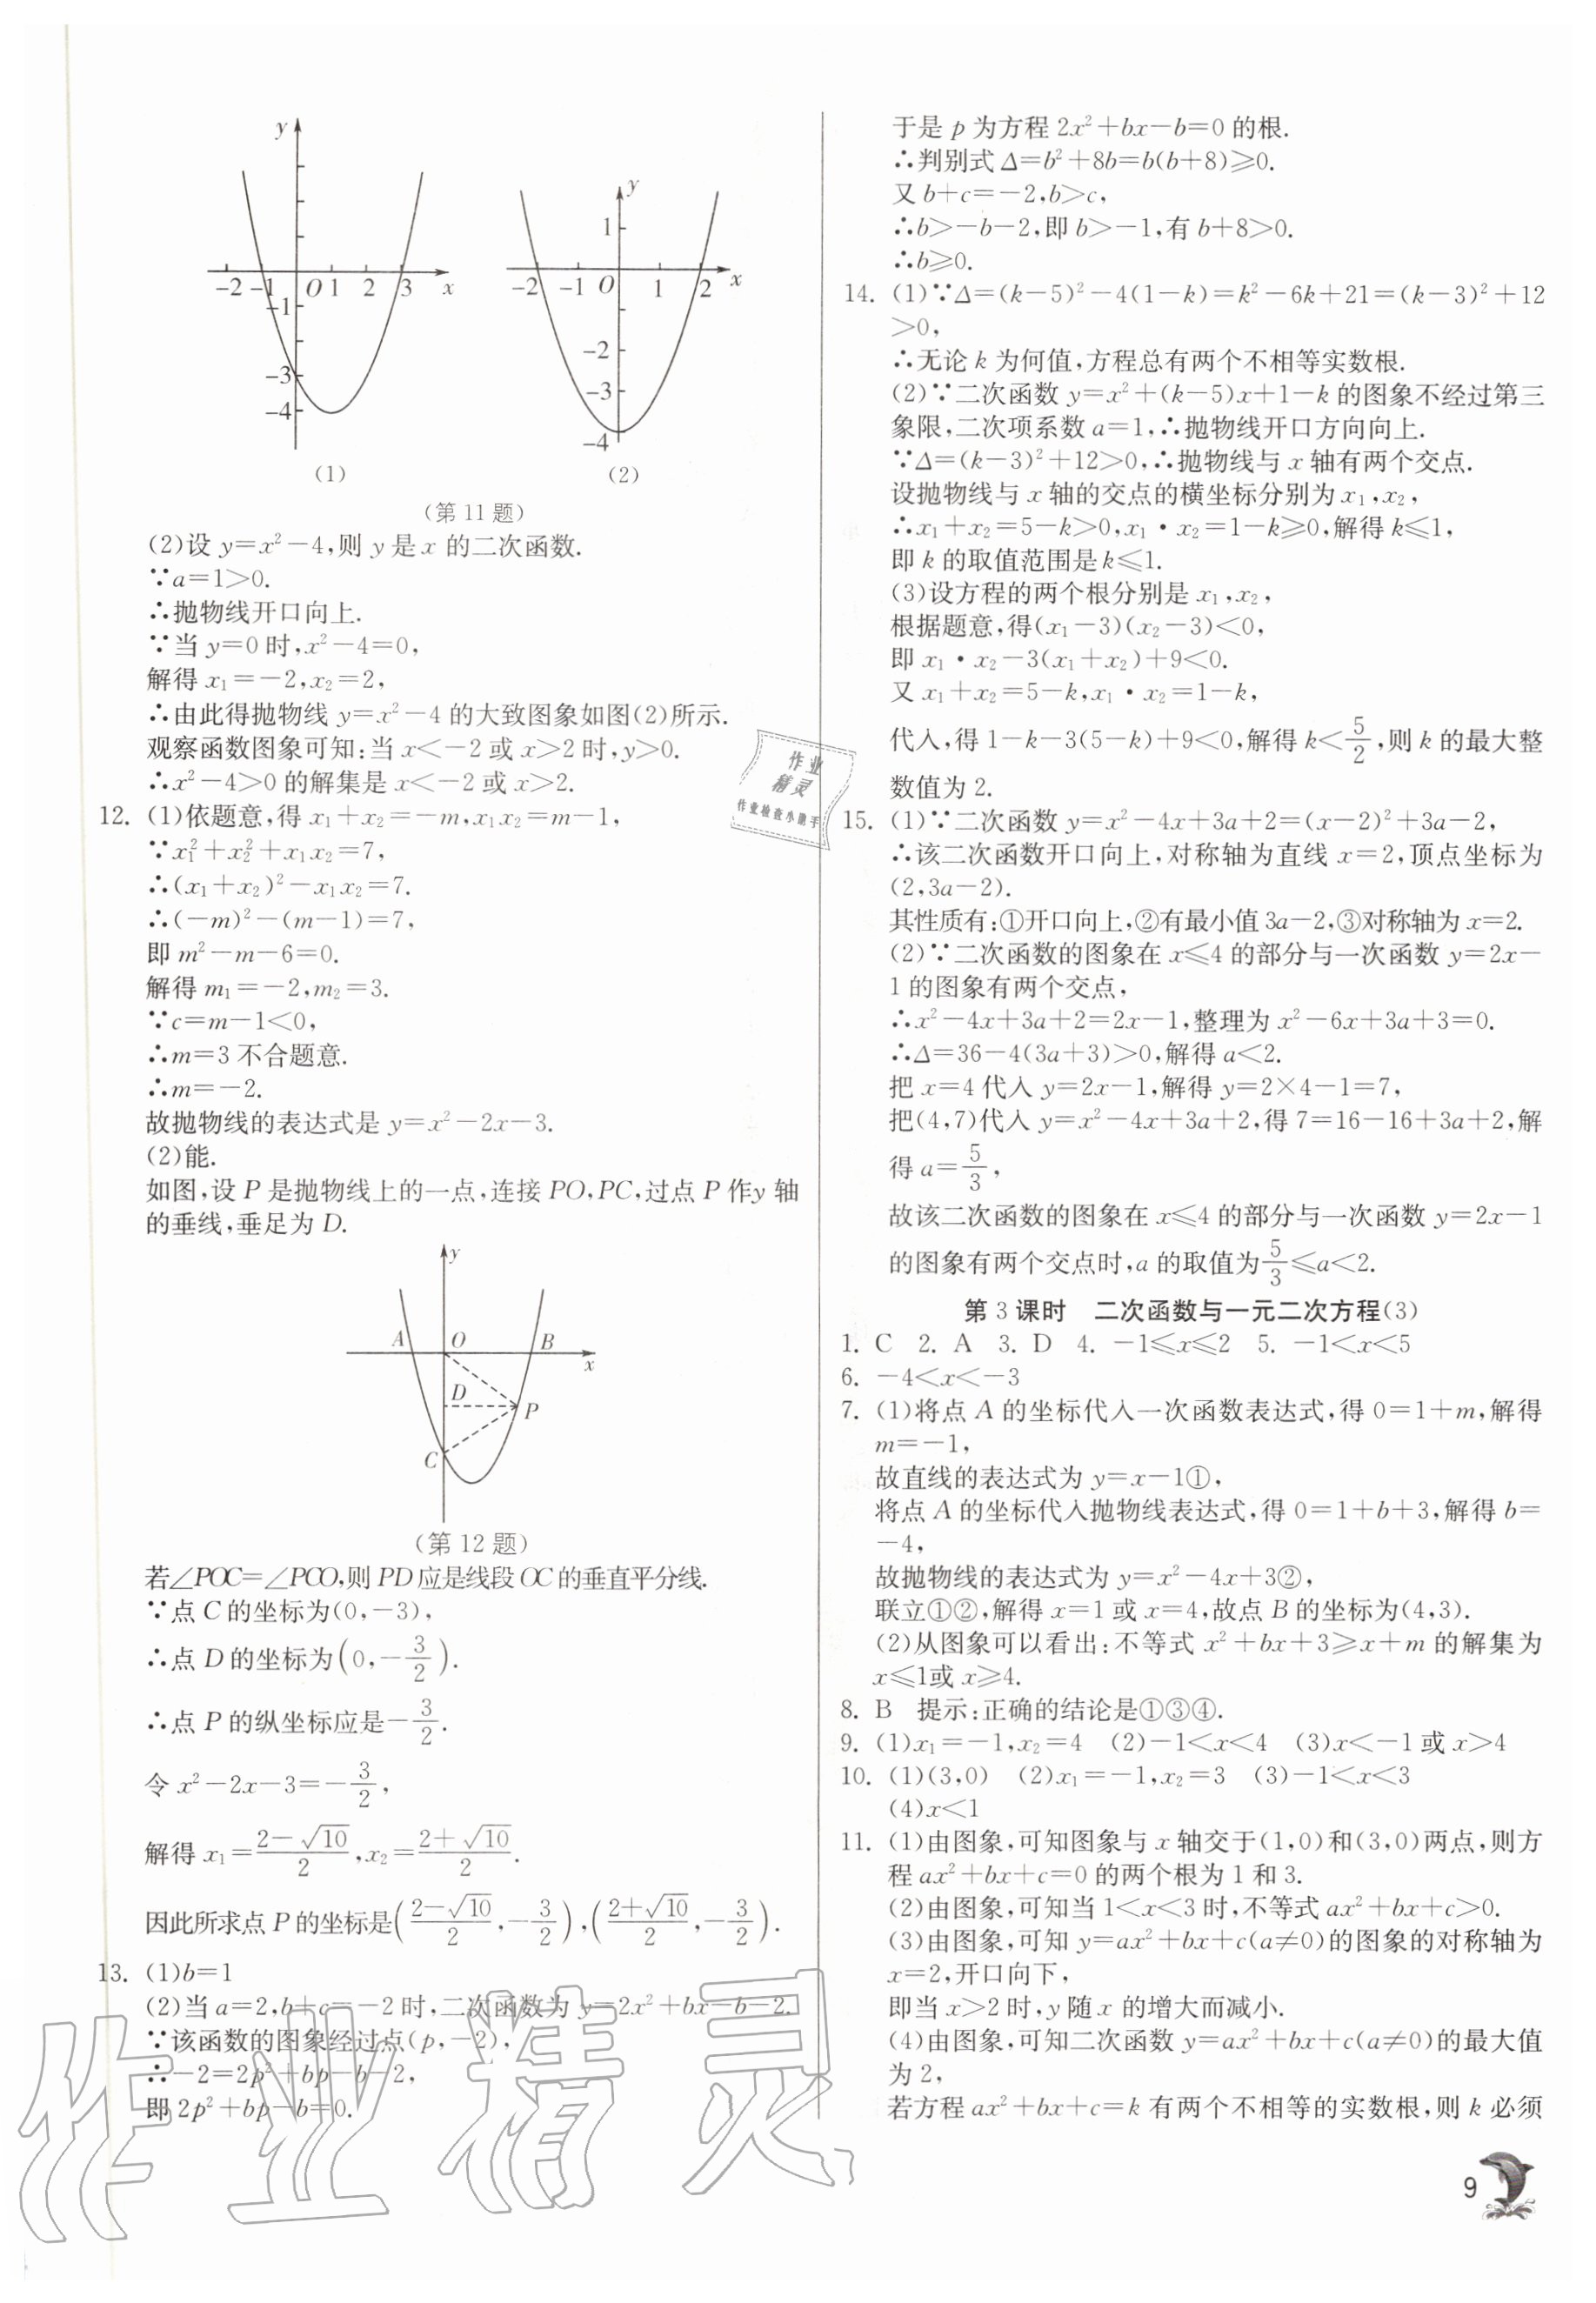 y
-2 -1 O 1 2 3 x
-1
-3
-4
(1)
y
1
-2 -1 O 1 2 x
-2
-3
-4
(2)
(第 11 题)
(2)设 y=x²-4,则 y 是 x 的二次函数.
∵a=1>0.
∴抛物线开口向上.
∵当 y=0 时,x²-4=0,
解得 x₁=-2,x₂=2,
∴由此得抛物线 y=x²-4 的大致图象如图(2)所示.
观察函数图象可知:当 x<-2 或 x>2 时,y>0.
∴x²-4>0 的解集是 x<-2 或 x>2.
12. (1)依题意,得 x₁+x₂=-m,x₁x₂=m-1,
∵x₁²+x₂²+x₁x₂=7,
∴(x₁+x₂)²-x₁x₂=7.
∴(-m)²-(m-1)=7,
即 m²-m-6=0.
解得 m₁=-2,m₂=3.
∵c=m-1<0,
∴m=3 不合题意.
∴m=-2.
故抛物线的表达式是 y=x²-2x-3.
(2)能.
如图,设 P 是抛物线上的一点,连接 PO,PC,过点 P 作y 轴
的垂线,垂足为 D.
y
A O B x
D
P
C
(第 12 题)
若∠POC=∠PCO,则 PD 应是线段 OC 的垂直平分线.
∵点 C 的坐标为(0,-3),
∴点 D 的坐标为(0,-3/2).
∴点 P 的纵坐标应是-3/2.
令 x²-2x-3=-3/2,
解得 x₁=(2-√10)/2,x₂=(2+√10)/2.
因此所求点 P 的坐标是((2-√10)/2,-3/2),((2+√10)/2,-3/2).
13. (1)b=1
(2)当 a=2,b+c=-2 时,二次函数为 y=2x²+bx-b-2.
∵该函数的图象经过点(p,-2),
∴-2=2p²+bp-b-2,
即 2p²+bp-b=0.
于是 p 为方程 2x²+bx-b=0 的根.
∴判别式 Δ=b²+8b=b(b+8)≥0.
又 b+c=-2,b>c,
∴b>-b-2,即 b>-1,有 b+8>0.
∴b≥0.
14. (1)∵Δ=(k-5)²-4(1-k)=k²-6k+21=(k-3)²+12
>0,
∴无论 k 为何值,方程总有两个不相等实数根.
(2)∵二次函数 y=x²+(k-5)x+1-k 的图象不经过第三
象限,二次项系数 a=1,∴抛物线开口方向向上.
∵Δ=(k-3)²+12>0,∴抛物线与 x 轴有两个交点.
设抛物线与 x 轴的交点的横坐标分别为 x₁,x₂,
∴x₁+x₂=5-k>0,x₁·x₂=1-k≥0,解得 k≤1,
即 k 的取值范围是 k≤1.
(3)设方程的两个根分别是 x₁,x₂,
根据题意,得(x₁-3)(x₂-3)<0,
即 x₁·x₂-3(x₁+x₂)+9<0.
又 x₁+x₂=5-k,x₁·x₂=1-k,
代入,得 1-k-3(5-k)+9<0,解得 k<5/2,则 k 的最大整
数值为 2.
15. (1)∵二次函数 y=x²-4x+3a+2=(x-2)²+3a-2,
∴该二次函数开口向上,对称轴为直线 x=2,顶点坐标为
(2,3a-2).
其性质有:①开口向上,②有最小值 3a-2,③对称轴为 x=2.
(2)∵二次函数的图象在 x≤4 的部分与一次函数 y=2x-
1 的图象有两个交点,
∴x²-4x+3a+2=2x-1,整理为 x²-6x+3a+3=0.
∴Δ=36-4(3a+3)>0,解得 a<2.
把 x=4 代入 y=2x-1,解得 y=2×4-1=7,
把(4,7)代入 y=x²-4x+3a+2,得 7=16-16+3a+2,解
得 a=5/3,
故该二次函数的图象在 x≤4 的部分与一次函数 y=2x-1
的图象有两个交点时,a 的取值为5/3≤a<2.
第 3 课时 二次函数与一元二次方程(3)
1. C 2. A 3. D 4. -1≤x≤2 5. -1<x<5
6. -4<x<-3
7. (1)将点 A 的坐标代入一次函数表达式,得 0=1+m,解得
m=-1,
故直线的表达式为 y=x-1①,
将点 A 的坐标代入抛物线表达式,得 0=1+b+3,解得 b=
-4,
故抛物线的表达式为 y=x²-4x+3②,
联立①②,解得 x=1 或 x=4,故点 B 的坐标为(4,3).
(2)从图象可以看出:不等式 x²+bx+3≥x+m 的解集为
x≤1或 x≥4.
8. B 提示:正确的结论是①③④.
9. (1)x₁=-1,x₂=4 (2)-1<x<4 (3)x<-1 或 x>4
10. (1)(3,0) (2)x₁=-1,x₂=3 (3)-1<x<3
(4)x<1
11. (1)由图象,可知图象与 x 轴交于(1,0)和(3,0)两点,则方
程 ax²+bx+c=0 的两个根为 1 和 3.
(2)由图象,可知当 1<x<3 时,不等式 ax²+bx+c>0.
(3)由图象,可知 y=ax²+bx+c(a≠0)的图象的对称轴为
x=2,开口向下,
即当 x>2 时,y 随 x 的增大而减小.
(4)由图象,可知二次函数 y=ax²+bx+c(a≠0)的最大值
为 2,
若方程 ax²+bx+c=k 有两个不相等的实数根,则 k 必须
作业
精灵
作业检查小助手
作业精灵
9